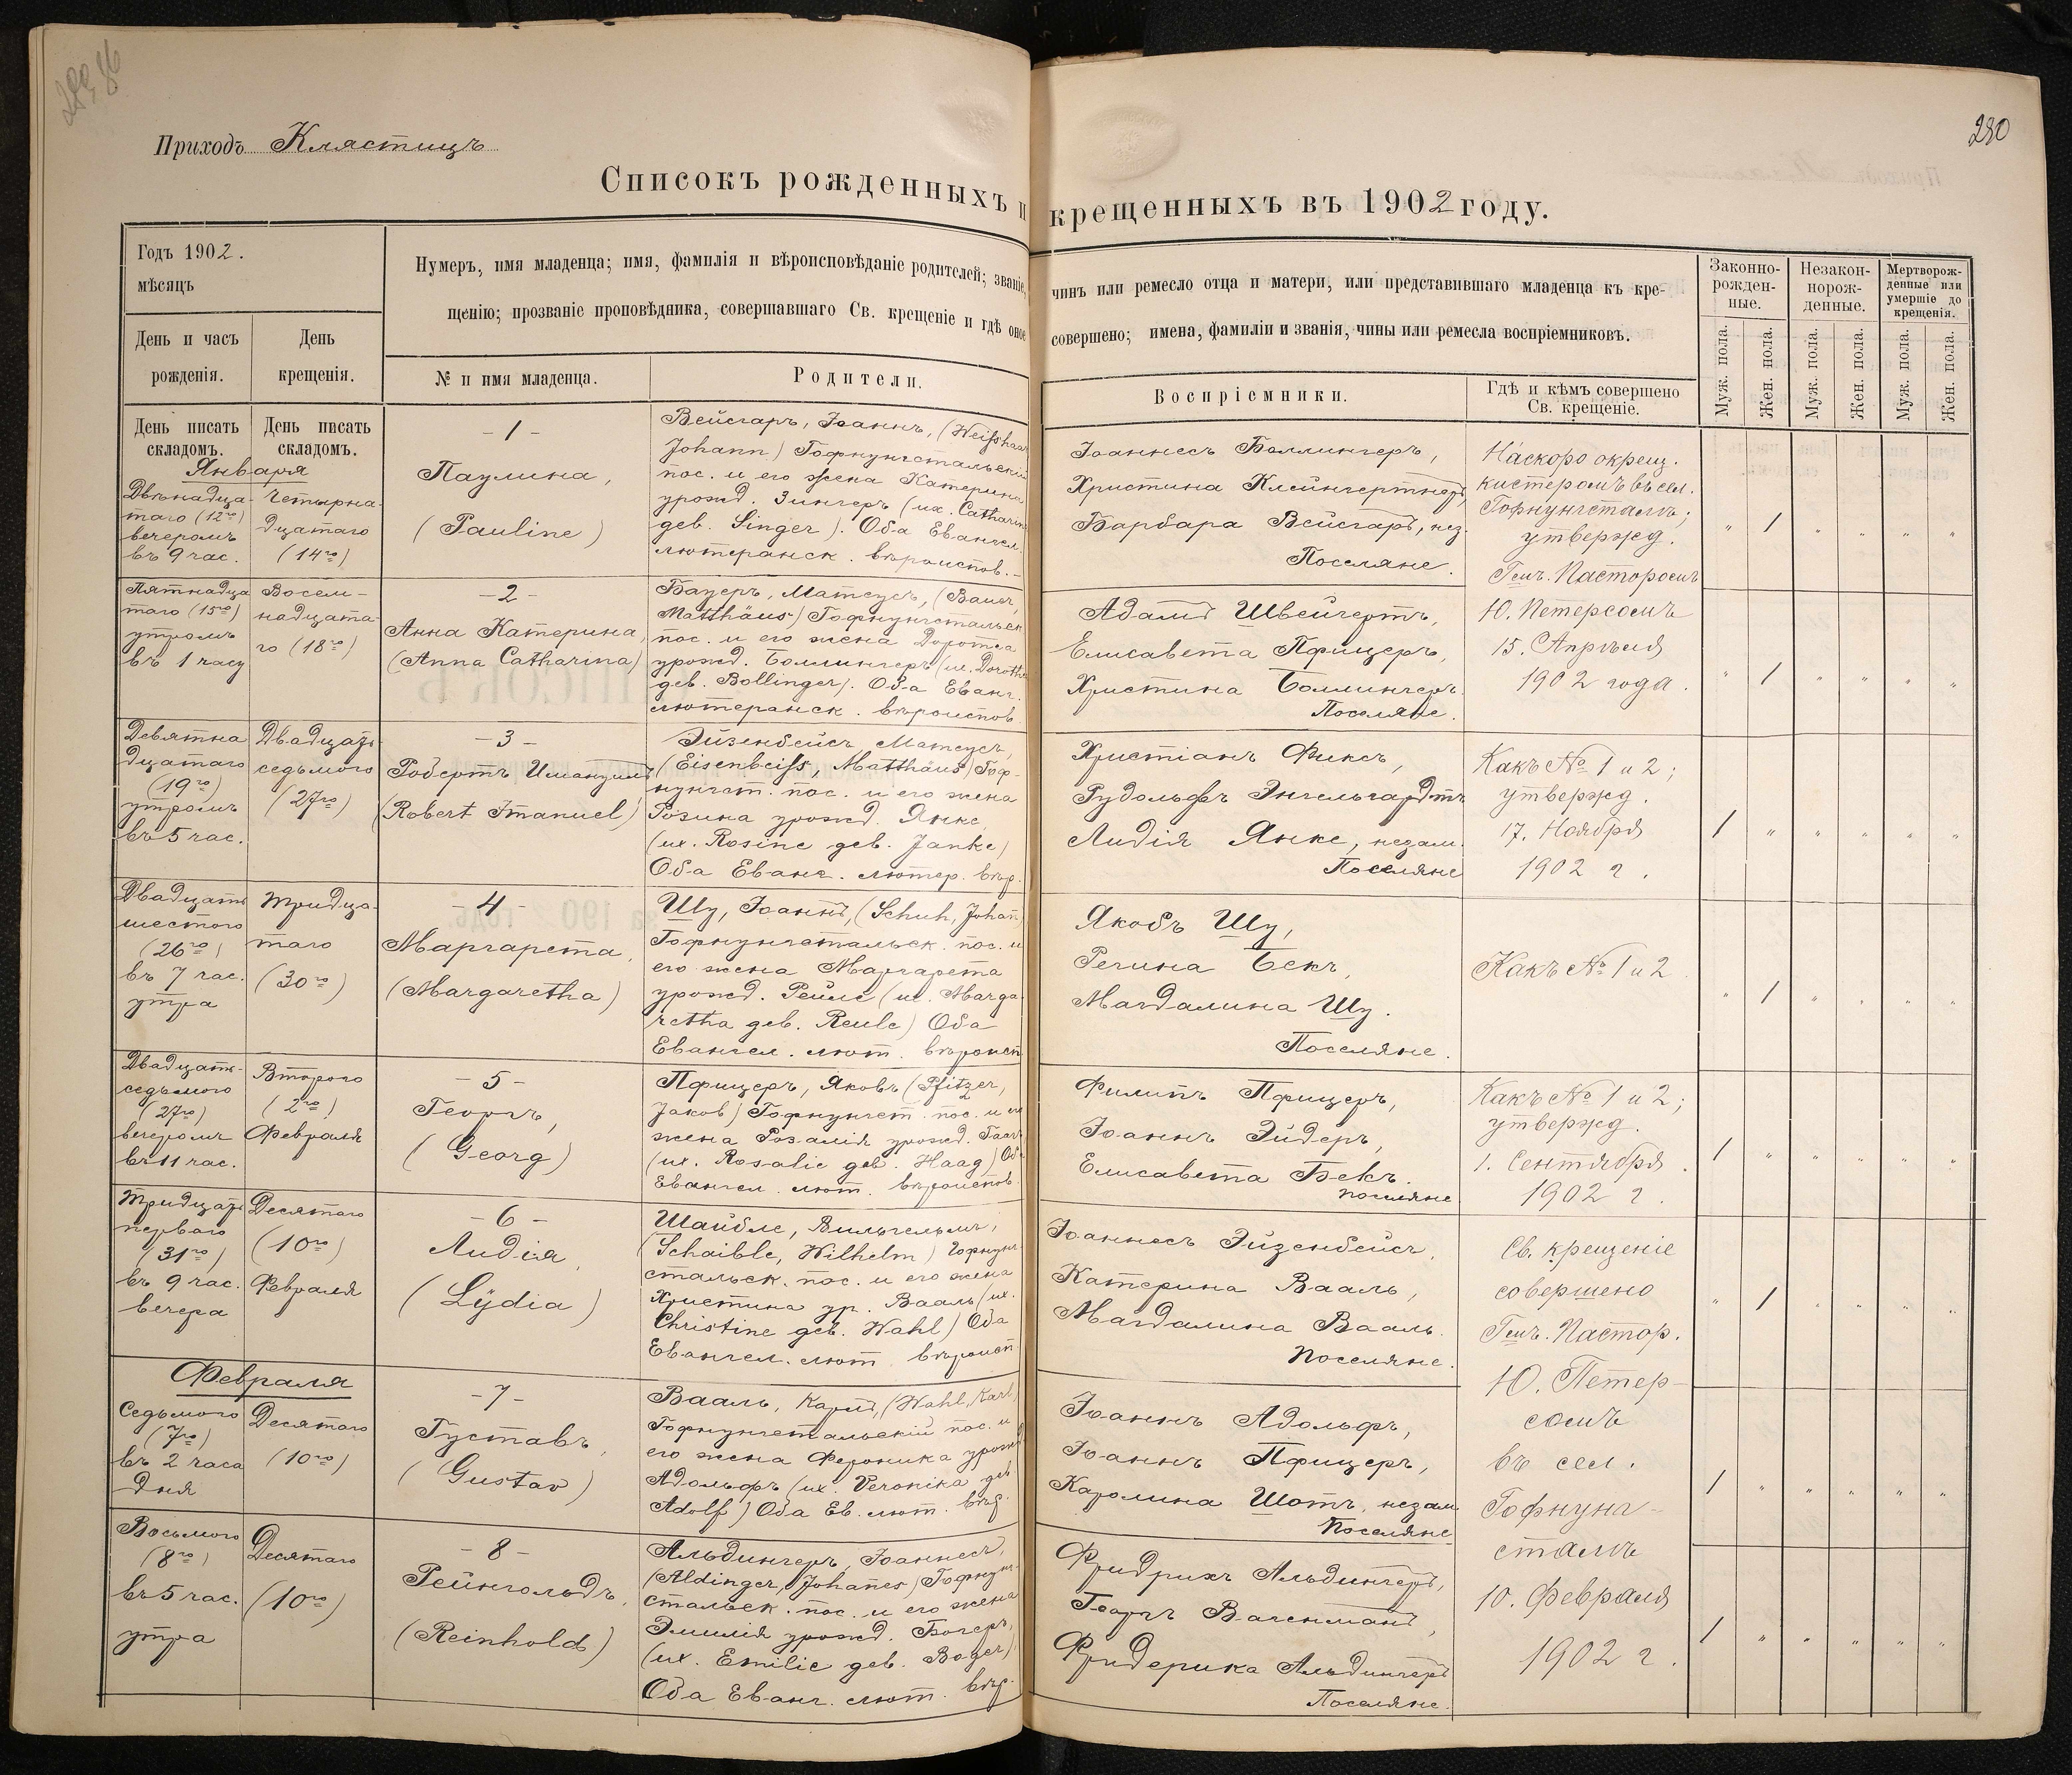 280
Приходъ Клястицъ
Списокъ рожденныхъ и крещенныхъ въ 1902 году.
Годъ 1902.
мѣсяцъ
Нумеръ, имя младенца; имя, фамилія и вѣроисповѣданіе родителей; званіе,
чинъ или ремесло отца и матери, или представившаго младенца къ кре-
щенію; прозваніе проповѣдника, совершавшаго Св. крещеніе и гдѣ оное
совершено; имена, фамиліи и званія, чины или ремесла воспріемниковъ.
День и часъ
рожденія.
День
крещенія.
№ и имя младенца.
Родители.
Воспріемники.
Гдѣ и кѣмъ совершено
Св. крещеніе.
Законно-
рожден-
ные.
Незакон-
норож-
денные.
Мертворож-
денные или
умершіе до
крещенія.
Муж. пола.
Жен. пола.
Муж. пола.
Жен. пола.
Муж. пола.
Жен. пола.
День писать
складомъ.
День писать
складомъ.
Января
Двѣнадца-
таго (12го)
вечеромъ
въ 9 час.
Четырна-
дцатаго
(14го)
- 1 -
Паулина,
(Pauline)
Вейсгаръ, Іоаннъ, (Weißhaar
Johann) Гофнунгстальскій
пос. и его жена Катерина
урожд. Зингеръ (их. Catharina
geb. Singer). Оба Евангел.
лютеранск. вѣроиспов. -
Іоаннесъ Боллингеръ,
Христина Клейнгертнеръ,
Барбара Вейсгаръ, нез.
Поселяне.
Наскоро окрещ.
кистеромъ въ сел.
Гофнунгсталь;
утвержд.
Ген. Пасторомъ
" 1 " " " "
Пятнадца
таго (15го)
утромъ
въ 1 часу
Восем-
надцата-
го (18го)
- 2 -
Анна Катерина,
(Anna Catharina)
Бауеръ, Матеусъ, (Bauer,
Matthäus) Гофнунгстальск
пос. и его жена Доротеа
урожд. Боллингеръ (их. Dorothea
geb. Bollinger). Оба Еванг.
лютеранск. вѣроиспов.
Адамъ Швейгертъ,
Елисавета Пфицеръ,
Христина Боллингеръ.
Поселяне.
Ю. Петерсомъ
15. Апрѣля
1902 года.
" 1 " " " "
Девятна
дцатаго
(19го)
утромъ
въ 5 час.
Двадцать
седьмого
(27го)
- 3 -
Робертъ Имануилъ
(Robert Imanuel)
Эйзенбейсъ, Матеусъ,
(Eisenbeiß, Matthäus) Гоф-
нунгст. пос. и его жена
Розина урожд. Янке,
(их. Rosine geb. Janke)
Оба Еванг. лютер. вѣр.
Христіанъ Фиксъ,
Рудольфъ Энгельгардтъ
Лидія Янке, незам.
Поселяне
Какъ № 1 и 2;
утвержд.
17. Ноября
1902 г.
1 " " " " "
Двадцать
шестого
(26го)
въ 7 час.
утра
Тридца-
таго
(30го)
- 4 -
Маргарета,
(Margaretha)
Шу, Іоаннъ, (Schuh, Johan
Гофнунгстальск. пос. и
его жена Маргарета
урожд. Рейле (их. Marga-
retha geb. Reule) Оба
Евангел. лют. вѣроисп
Якобъ Шу,
Регина Бекъ,
Магдалина Шу.
Поселяне.
Какъ № 1 и 2
" 1 " " " "
Двадцать-
седьмого
(27го)
вечеромъ
въ 11 час.
Второго
(2го)
Февраля
- 5 -
Георгъ,
(Georg)
Пфицеръ, Яковъ (Pfitzer,
Jakob) Гофнунгст. пос. и его
жена Розалія урожд. Гаагъ
(их. Rosalie geb. Haag) Оба
Евангел. лют. вѣроиспов.
Филипъ Пфицеръ,
Іоаннъ Эйдеръ,
Елисавета Бекъ.
поселяне
Какъ № 1 и 2;
утвержд.
1. Сентября.
1902 г.
1 " " " " "
Тридцать
перваго
(31го)
въ 9 час.
вечера
Десятаго
(10го)
Февраля
- 6 -
Лидія,
(Lÿdia)
Шайбле, Вильгельмъ,
(Schaible, Wilhelm) Гофнунг-
стальск. пос. и его жена
Христина ур. Вааль (их.
Christine geb. Wahl) Оба
Евангел. лют. вѣроисп.
Іоаннесъ Эйзенбейсъ,
Катерина Вааль,
Магдалина Вааль.
Поселяне.
Св. крещеніе
совершено
Ген. Пастор.
Ю. Петер-
сомъ
въ сел.
Гофнунг-
сталь
10. Февраля
1902 г.
" 1 " " " "
Февраля
Седьмого
(7го)
въ 2 часа
дня
Десятаго
(10го)
- 7 -
Густавъ,
(Gustav)
Вааль, Карлъ, (Wahl, Karl)
Гофнунгстальскій пос. и
его жена Фероника урожд
Адольфъ (их. Veronika geb
Adolf) Оба Ев. лют. вѣр.
Іоаннъ Адольфъ,
Іоаннъ Пфицеръ,
Каролина Шотъ, незам
Поселяне
1 " " " " "
Восьмого
(8го)
въ 5 час.
утра
Десятаго
(10го)
- 8 -
Рейнгольдъ,
(Reinhold)
Альдингеръ, Іоаннесъ,
(Aldinger, Johañes) Гофнунг-
стальск. пос. и его жена
Эмилія урожд. Богеръ,
(их. Emilie geb. Boger)
Оба Еванг. лют. вѣр.
Фридрихъ Альдингеръ,
Георгъ Вагенманъ,
Фридерика Альдингеръ
Поселяне.
1 " " " " "